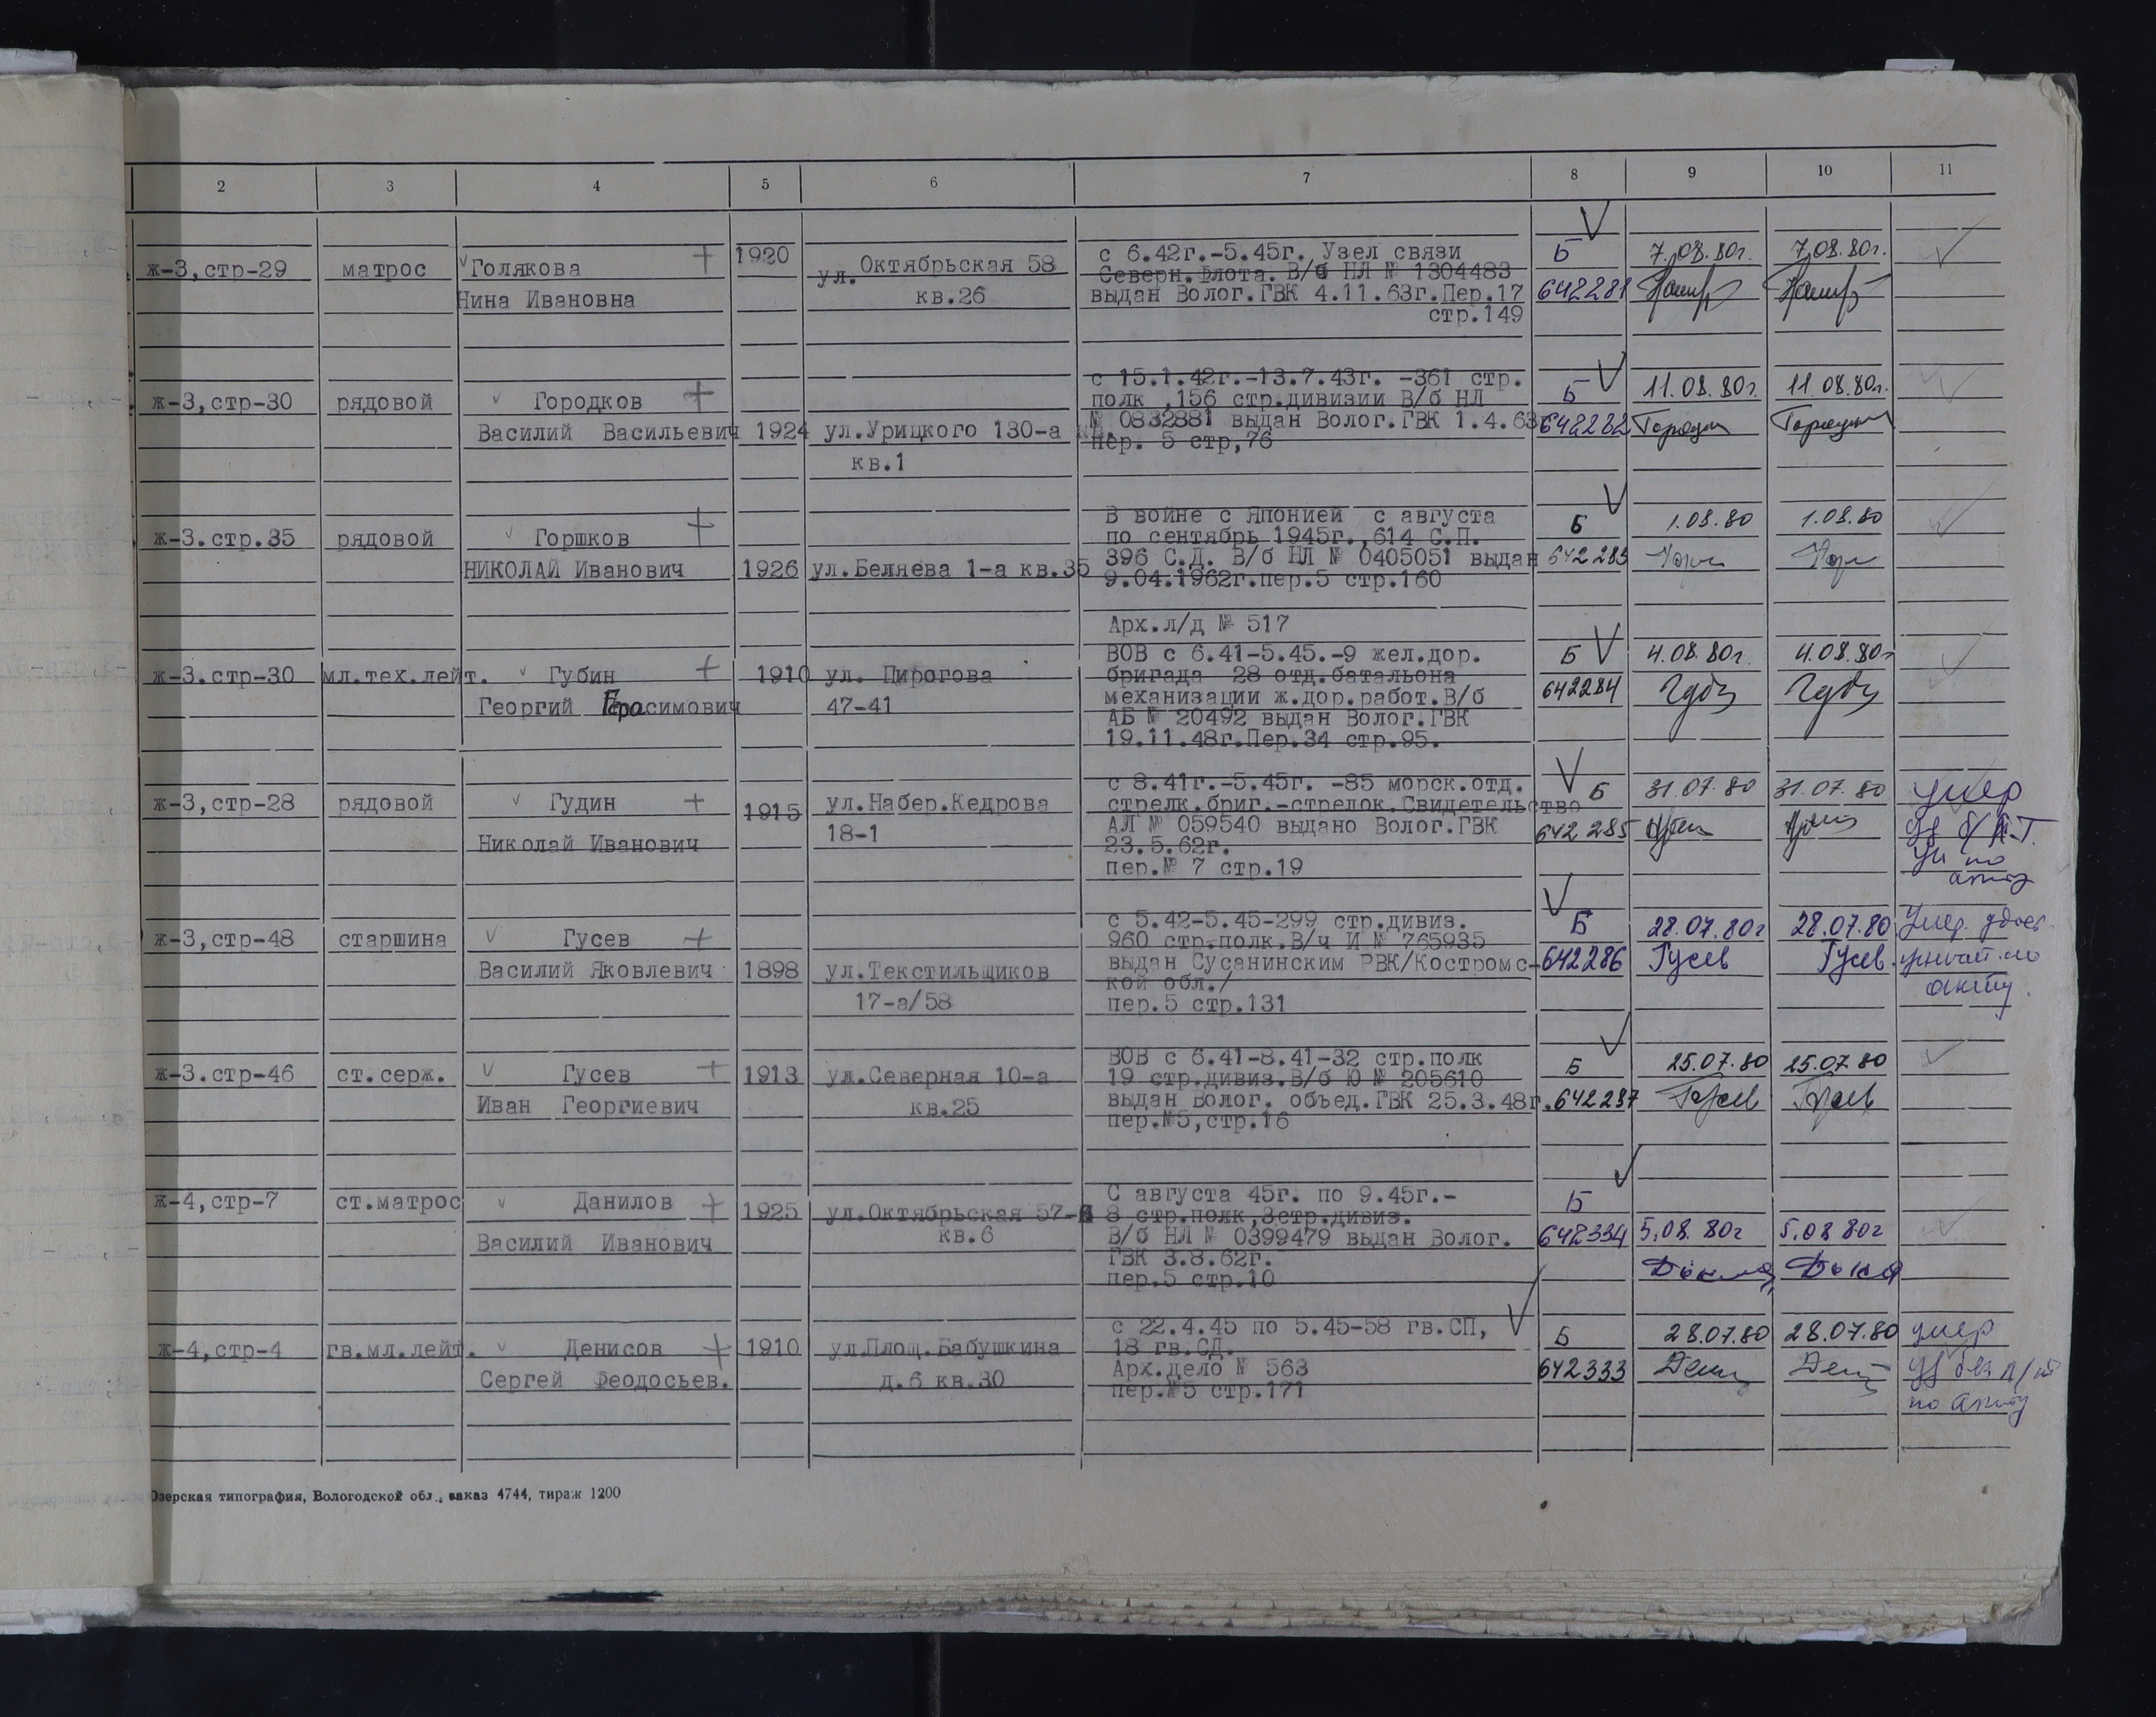 2 3 4 5 6 7 8 9 10 11
ж-3,стр-29 матрос Голякова 1920 ул. Октябрьская 58 с 6.42г.-5.45г. Узел связи Б 7.08.80г. 7.08.80г.
Нина Ивановна кв.26 Северн.Флота. В/б НЛ № 1304483 642281
выдан Волог.ГВК 4.11.63г.Пер.17
стр.149
с 15.1.42г.-13.7.43г. -361 стр.
ж-3,стр-30 рядовой Городков полк ,156 стр.дивизии В/б НЛ Б 11.08.80г. 11.08.80г.
Василий Васильевич 1924 ул.Урицкого 130-а № 0832881 выдан Волог.ГВК 1.4.63г 642282
кв.1 пер. 5 стр,76
В войне с Японией с августа
ж-3.стр.35 рядовой Горшков по сентябрь 1945г.,614 С.П. Б 1.08.80 1.08.80
НИКОЛАЙ Иванович 1926 ул.Беляева 1-а кв.35 396 С.Д. В/б НЛ № 0405051 выдан 642283
9.04.1962г.пер.5 стр.160
Арх.л/д № 517
ВОВ с 6.41-5.45.-9 жел.дор. Б 4.08.80г. 4.08.80г
ж-3.стр-30 мл.тех.лейт. Губин 1910 ул. Пирогова бригада 28 отд.батальона 642284
Георгий Герасимович 47-41 механизации ж.дор.работ.В/б
АБ № 20492 выдан Волог.ГВК
19.11.48г.Пер.34 стр.95.
с 8.41г.-5.45г. -85 морск.отд.
ж-3,стр-28 рядовой Гудин 1915 ул.Набер.Кедрова стрелк.бриг.-стрелок.Свидетельство Б 31.07.80 31.07.80 умер
Николай Иванович 18-1 АЛ № 059540 выдано Волог.ГВК 642285
23.5.62г.
пер.№ 7 стр.19
с 5.42-5.45-299 стр.дивиз.
ж-3,стр-48 старшина Гусев 960 стр.полк.В/ч И № 765935 Б 28.07.80г 28.07.80 Умер. удост.
Василий Яковлевич 1898 ул.Текстильщиков выдан Сусанинским РВК/Костромс- 642286 Гусев Гусев
17-а/58 кой обл./ акту.
пер.5 стр.131
ВОВ с 6.41-8.41-32 стр.полк
ж-3.стр-46 ст.серж. Гусев 1913 ул.Северная 10-а 19 стр.дивиз.В/б Ю № 205610 Б 25.07.80 25.07.80
Иван Георгиевич кв.25 выдан Волог. объед.ГВК 25.3.48г. 642287 Гусев Гусев
пер.№5,стр.16
С августа 45г. по 9.45г.-
ж-4,стр-7 ст.матрос Данилов 1925 ул.Октябрьская 57- 8 стр.полк,3стр.дивиз. Б
Василий Иванович кв.6 В/б НЛ № 0399479 выдан Волог. 642334 5.08.80г 5.08 80г
ГВК 3.8.62г.
пер.5 стр.10
с 22.4.45 по 5.45-58 гв.СП,
ж-4,стр-4 гв.мл.лейт. Денисов 1910 ул.Площ.Бабушкина 18 гв.СД. Б 28.07.80 28.07.80 умер
Сергей Феодосьев. д.6 кв.30 Арх.дело № 563 642333
пер.№5 стр.171 по акту
Озерская типография, Вологодской обл., заказ 4744, тираж 1200